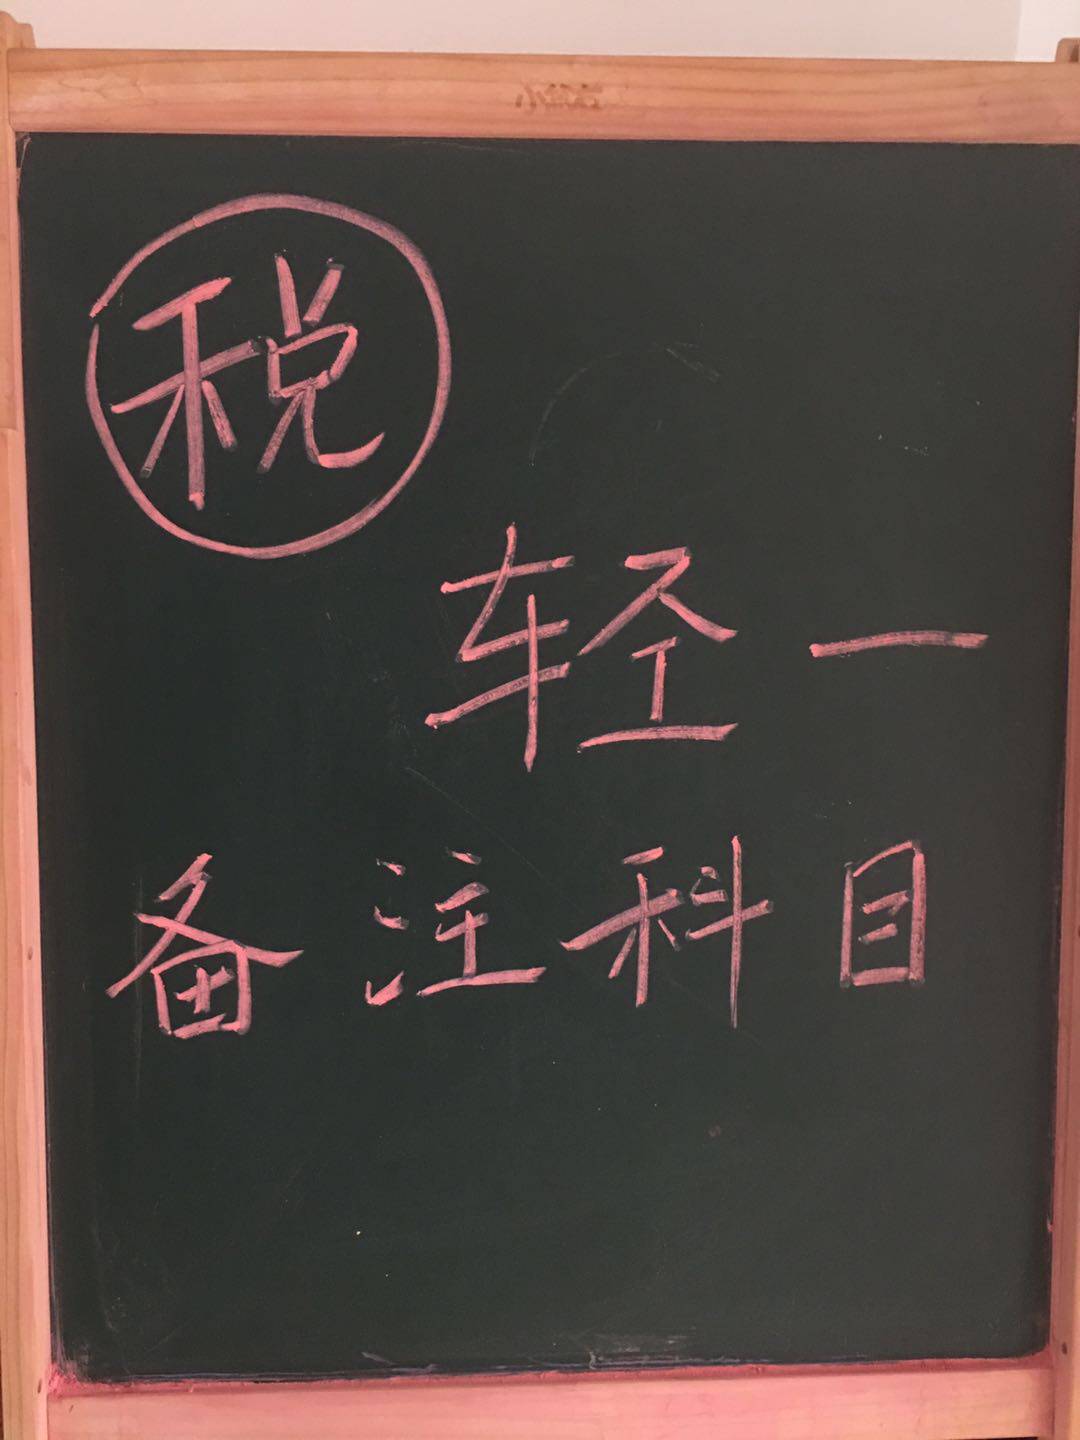 税
轻一
备注科目